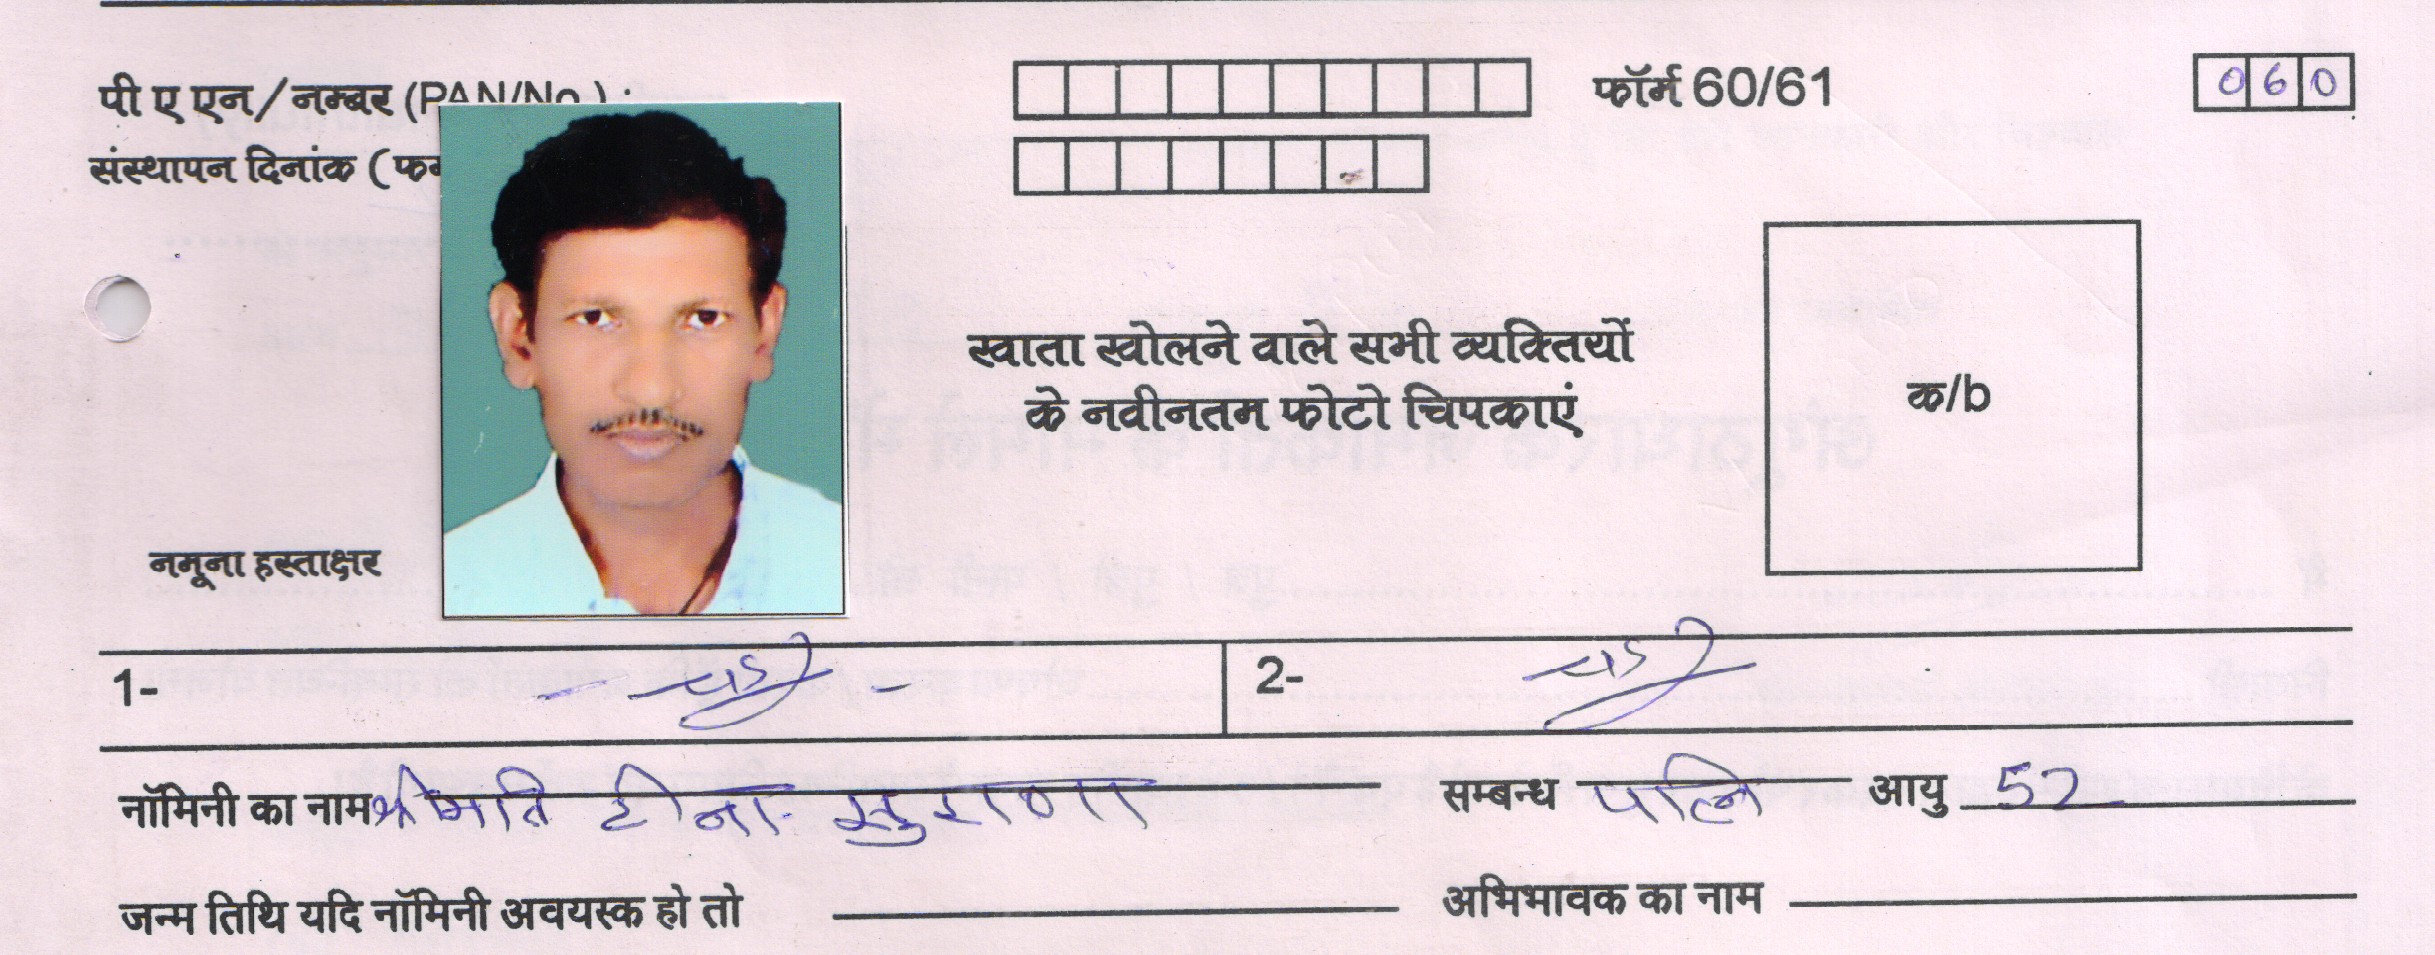 पी ए एन/नम्बर (PAN/No.) : फॉर्म 60/61 060
संस्थापन दिनांक (
खाता खोलने वाले सभी व्यक्तियों
के नवीनतम फोटो चिपकाएं
क/b
नमूना हस्ताक्षर
1- 2-
नॉमिनी का नाम श्रीमति टीना सुराणा सम्बन्ध पत्नि आयु 52
जन्म तिथि यदि नॉमिनी अवयस्क हो तो अभिभावक का नाम